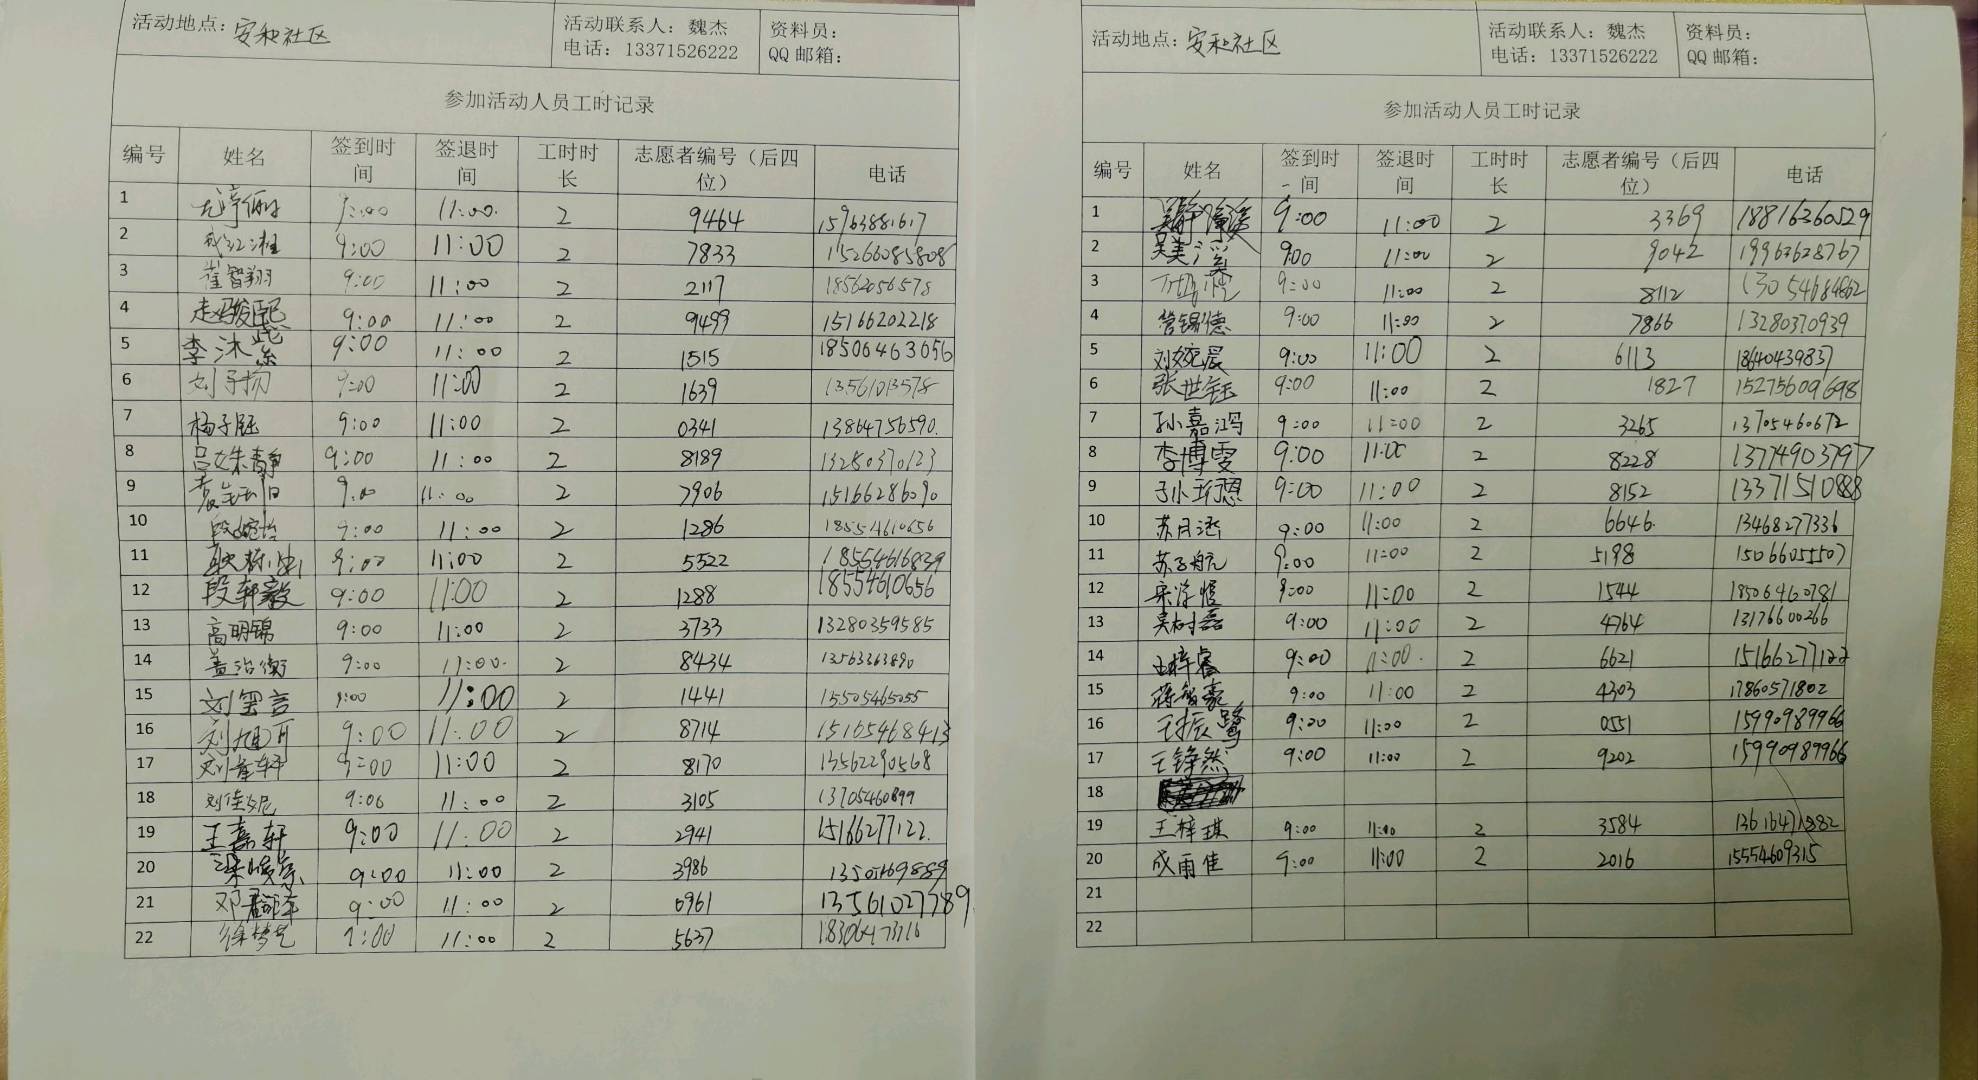 活动地点：安和社区 活动联系人：魏杰 资料员：
电话：13371526222 QQ 邮箱：
参加活动人员工时记录
编号 姓名 签到时间 签退时间 工时时长 志愿者编号（后四位） 电话
1 11:00. 2 9464 15963881617
2 9:00 11:00 2 7833 15266085808
3 崔智翔 9:00 11:00 2 2117 18562056578
4 赵骏熙 9:00 11:00 2 9499 15166202218
5 李沐 9:00 11:00 2 1515 18506463656
6 刘子扬 9:00 11:00 2 1639 13561013578
7 杨子钰 9:00 11:00 2 0341 13864756590.
8 吕姝静 9:00 11:00 2 8189 13280370123
9 9:00 11:00 2 7906 15166286090
10 段婉怡 9:00 11:00 2 1286 18554610656
11 9:00 11:00 2 5522 18554616839
12 段轩毅 9:00 11:00 2 1288 18554610656
13 高明锦 9:00 11:00 2 3733 13280359585
14 盖治衡 9:00 11:00. 2 8434 13563363890
15 刘玺言 9:00 11:00 2 1441 15505465055
16 9:00 11:00 2 8714 15105468413
17 9:00 11:00 2 8170 13562290568
18 刘佳妮 9:00 11:00 2 3105 13705460899
19 王嘉轩 9:00 11:00 2 2941 15166277122.
20 9:00 11:00 2 3986
21 9:00 11:00 2 0961 13561027789.
22 徐梦艺 9:00 11:00 2 5637
活动地点：安和社区 活动联系人：魏杰 资料员：
电话：13371526222 QQ 邮箱：
参加活动人员工时记录
编号 姓名 签到时间 签退时间 工时时长 志愿者编号（后四位） 电话
1 9:00 11:00 2 3369 18816360529
2 吴美溪 9:00 11:00 2 9042 19963628767
3 9:00 11:00 2 8112 13054684862
4 管锡德 9:00 11:00 2 7866 13280370939
5 刘婉晨 9:00 11:00 2 6113 18640439837
6 张世钰 9:00 11:00 2 1827 15275609698
7 孙嘉鸿 9:00 11:00 2 3265 13705460672
8 李博雯 9:00 11:00 2 8228 13774903797
9 9:00 11:00 2 8152 13371510888
10 苏月涵 9:00 11:00 2 6646. 13468277336
11 苏子航 9:00 11:00 2 5198 15066055507
12 9:00 11:00 2 1544 18506460781
13 吴树磊 9:00 11:00 2 4764 13176600266
14 王梓睿 9:00 11:00. 2 6621 15166277122
15 蒋智豪 9:00 11:00 2 4303 17860571802
16 王振鹭 9:00 11:00 2 0551 15990989966
17 王铮然 9:00 11:00 2 9202 15990989966
18
19 王梓琪 9:00 11:00 2 3584 13616471882
20 成雨佳 9:00 11:00 2 2016 15554609315
21
22